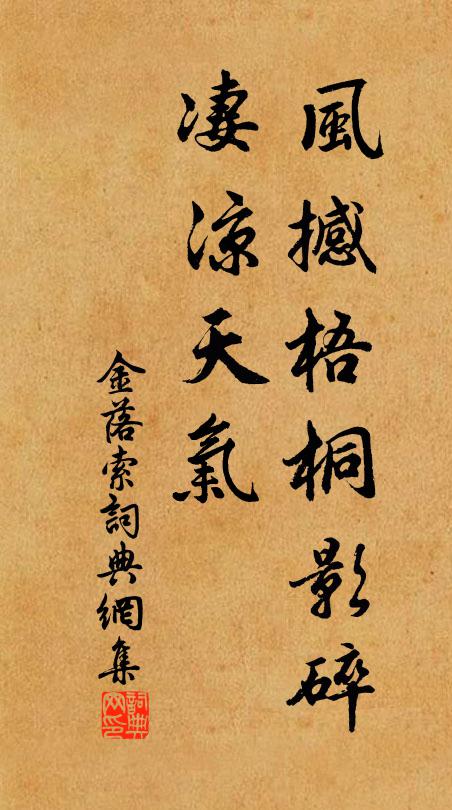 風撼梧桐影碎
凄涼天氣
金落索詞典網集
詞典网印